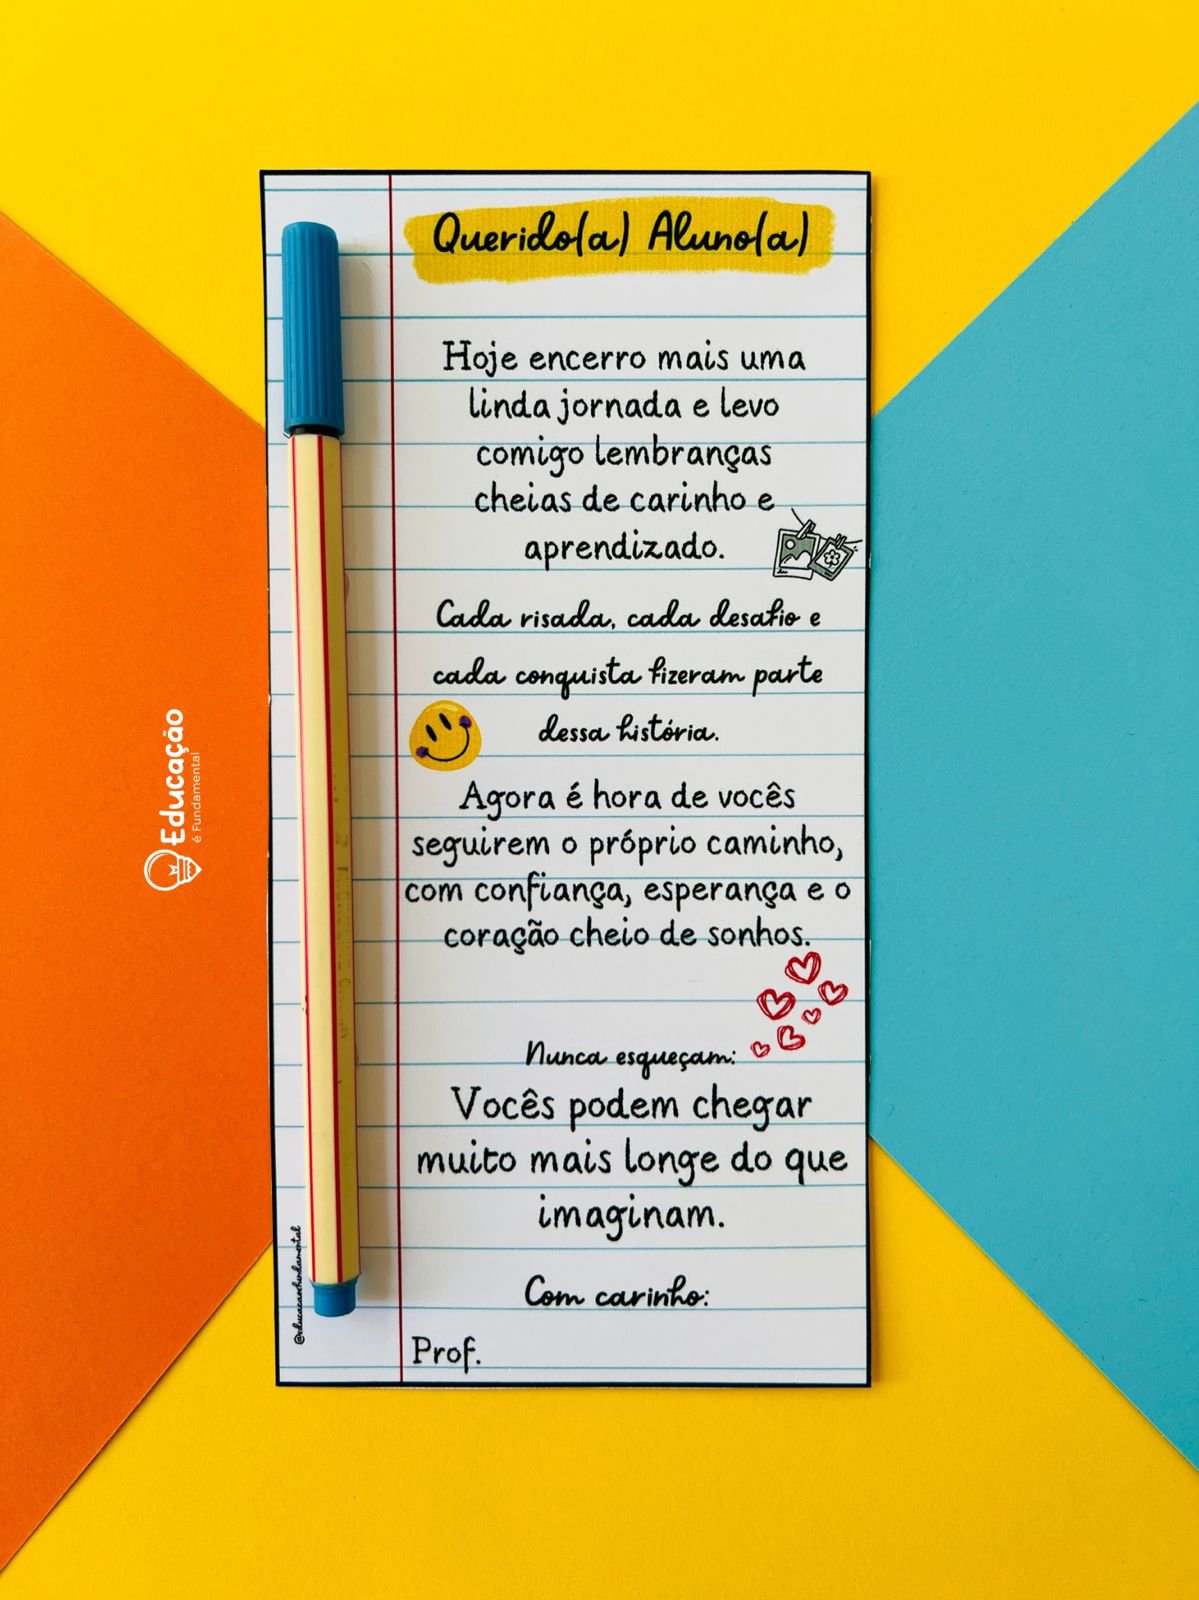 Querido(a) Aluno(a)
Hoje encerro mais uma
linda jornada e levo
comigo lembranças
cheias de carinho e
aprendizado.
Cada risada, cada desafio e
cada conquista fizeram parte
dessa história.
Agora é hora de vocês
seguirem o próprio caminho,
com confiança, esperança e o
coração cheio de sonhos.
Nunca esqueçam:
Vocês podem chegar
muito mais longe do que
imaginam.
Com carinho:
Prof.
@educacaoefundamental
Educação
é Fundamental